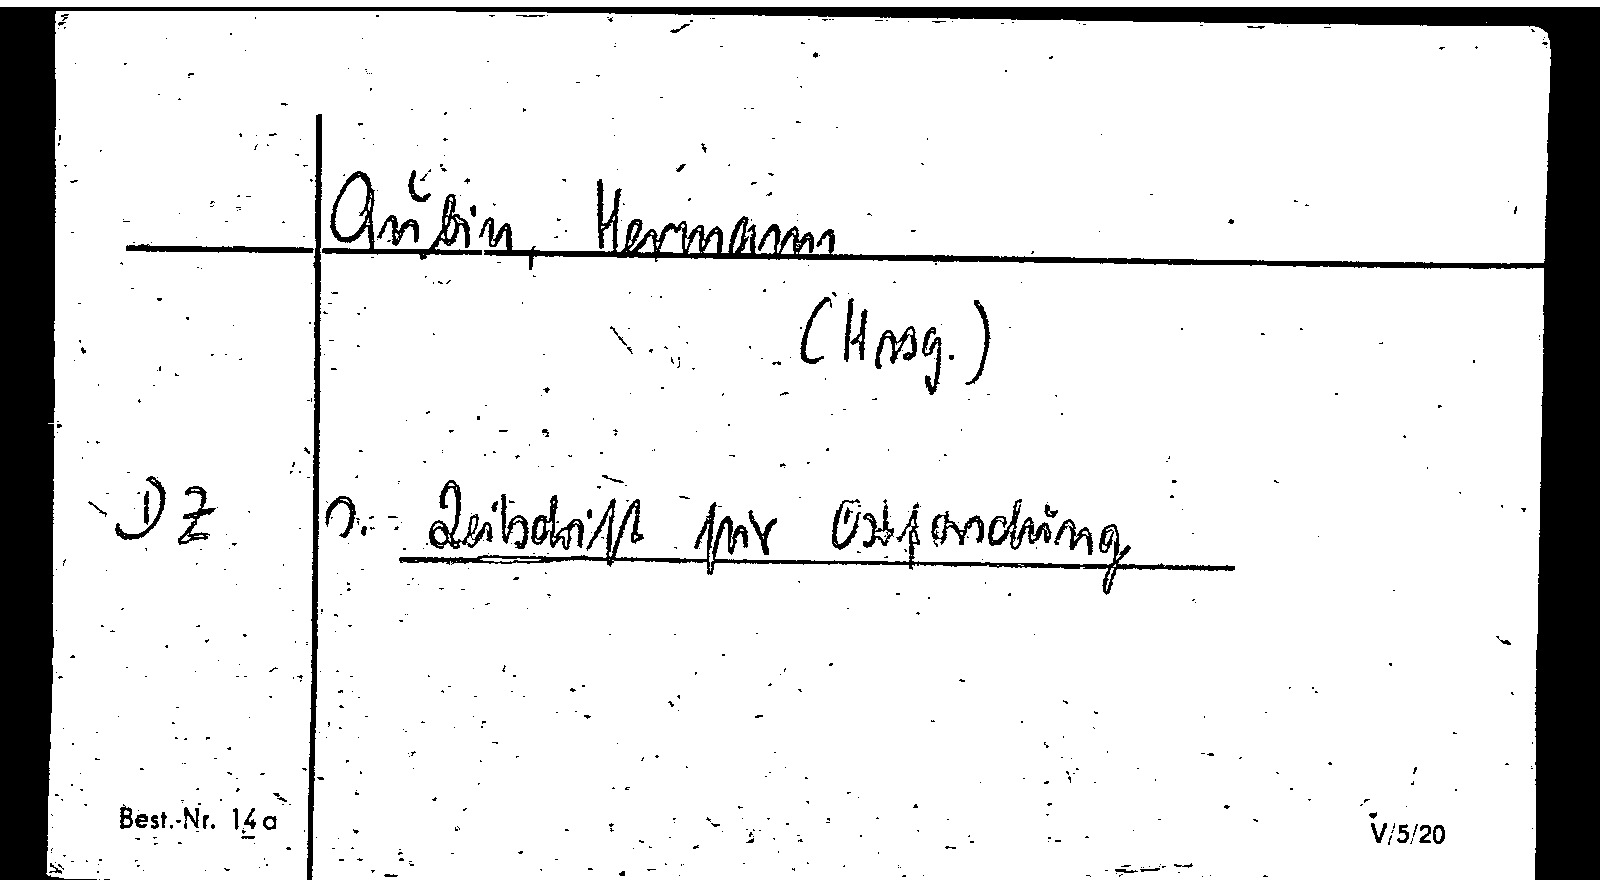 Aubin, Hermann
(Hrsg.)
DZ s. Zeitschrift für Ostforschung
Best.-Nr. 14a V/5/20